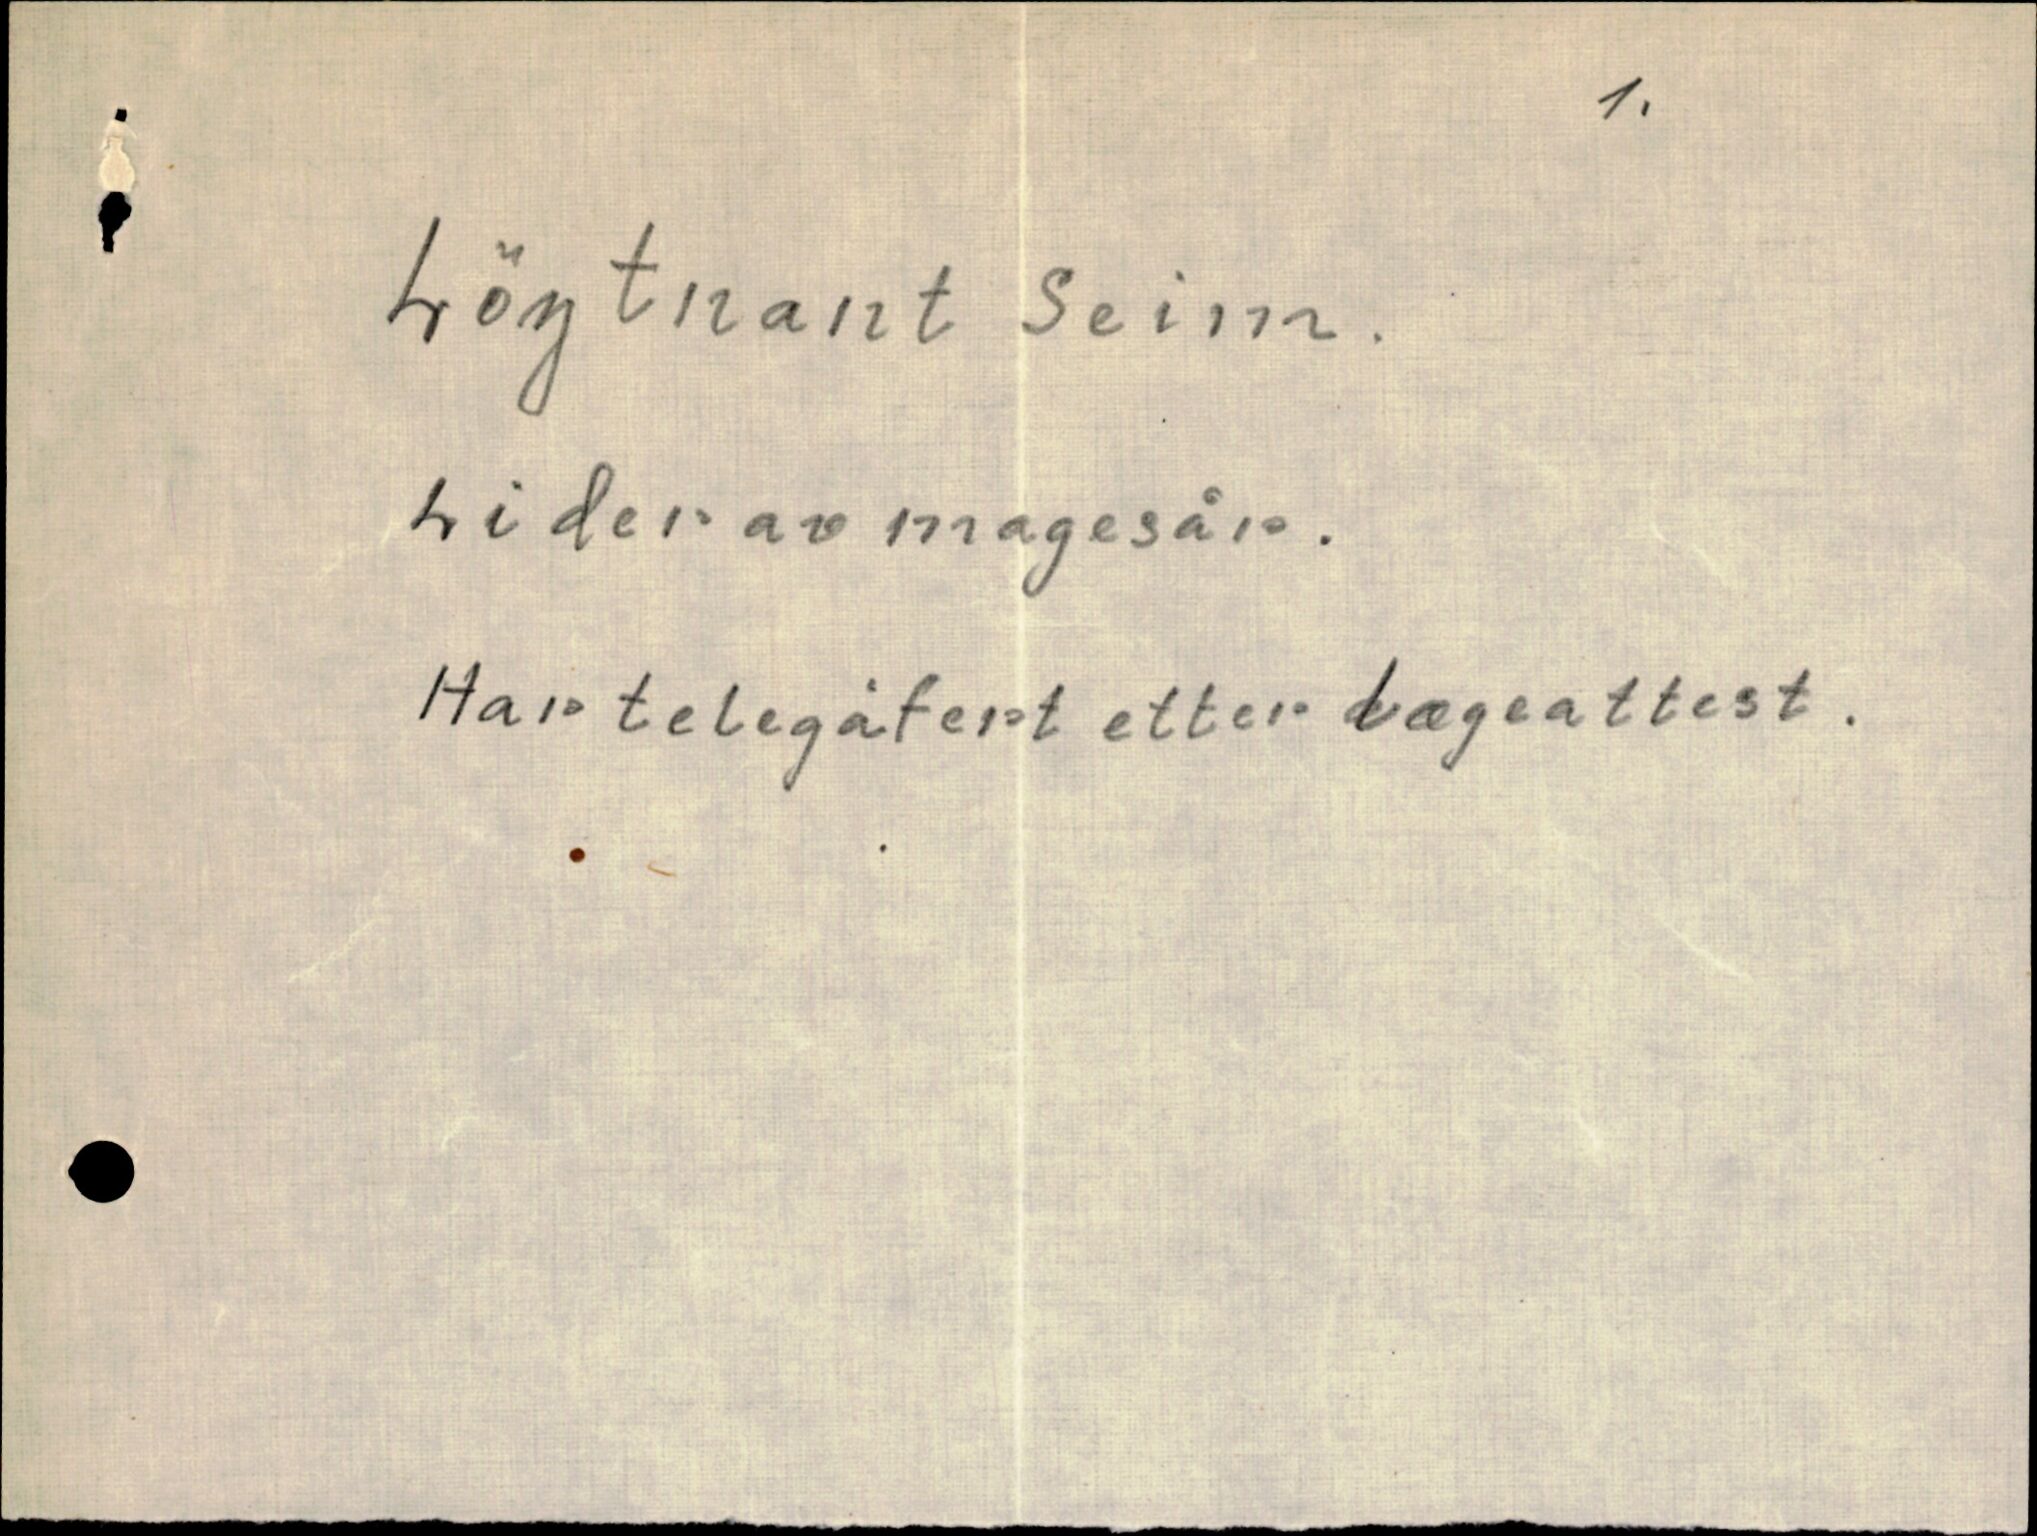 1.
Löytnant Seim.
Lider av magesår.
Har telegåfert etter lægeattest.